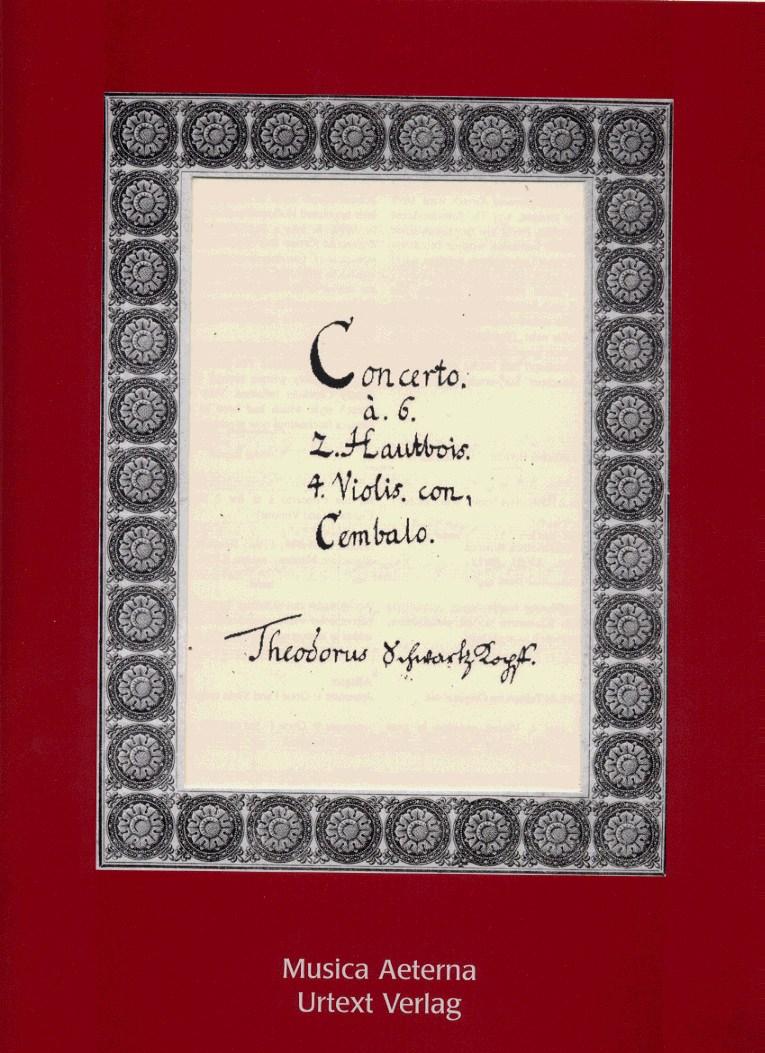 Concerto.
à. 6.
2. Hautbois.
4. Violis. con,
Cembalo.
Theodorus SchwartzKopff.
Musica Aeterna
Urtext Verlag